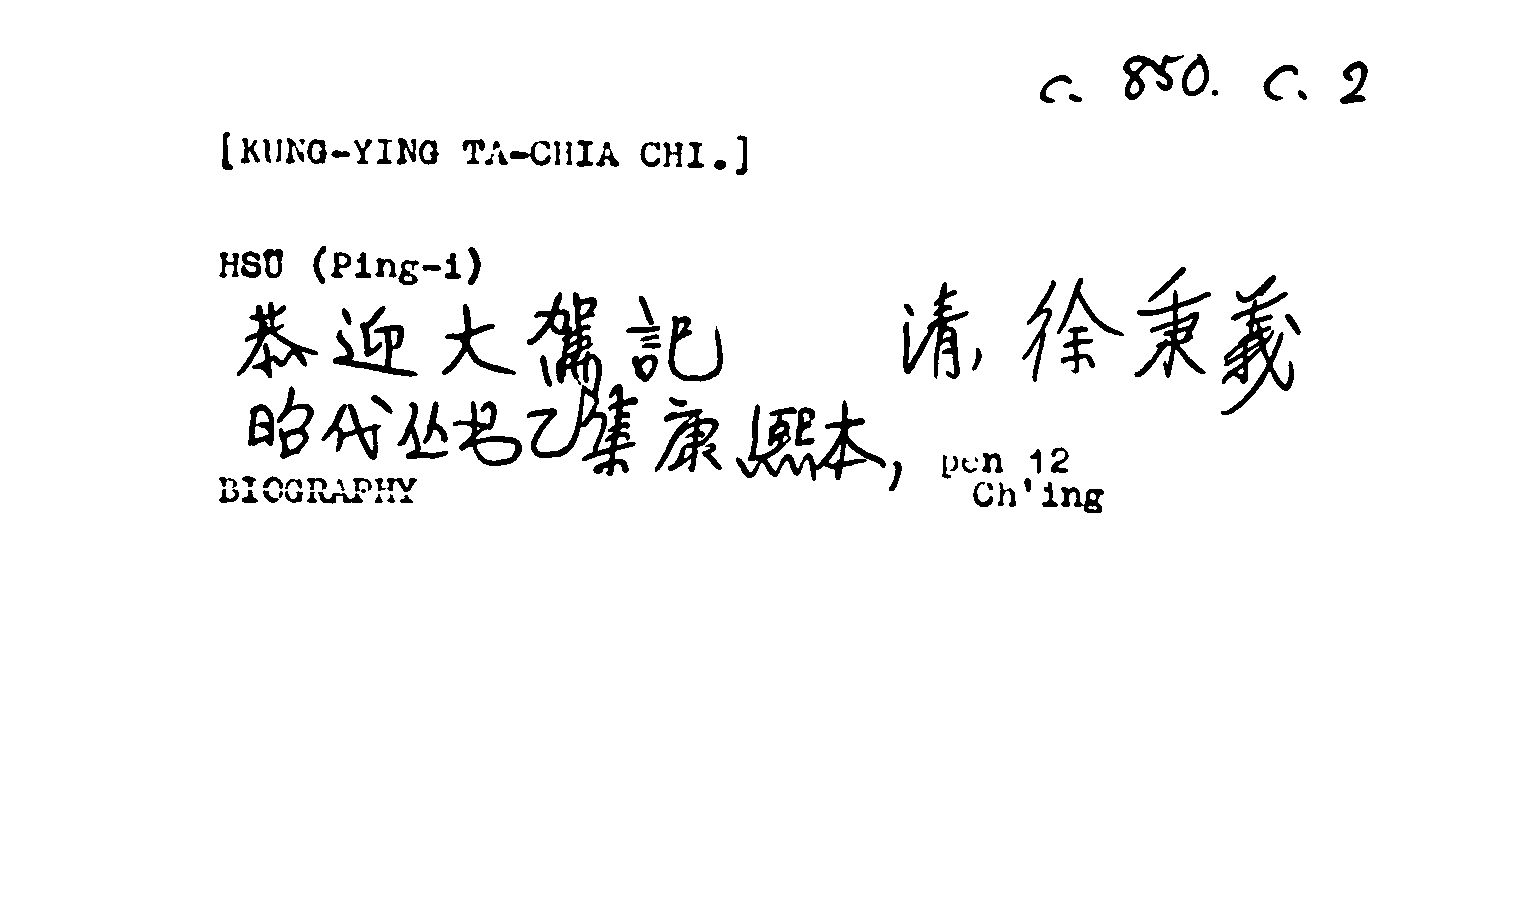 c. 850. c. 2
[KUNG-YING TA-CHIA CHI.]
HSÜ (Ping-i)
恭迎大駕記 清, 徐秉義
昭代丛书乙集康熙本, pen 12
BIOGRAPHY Ch'ing